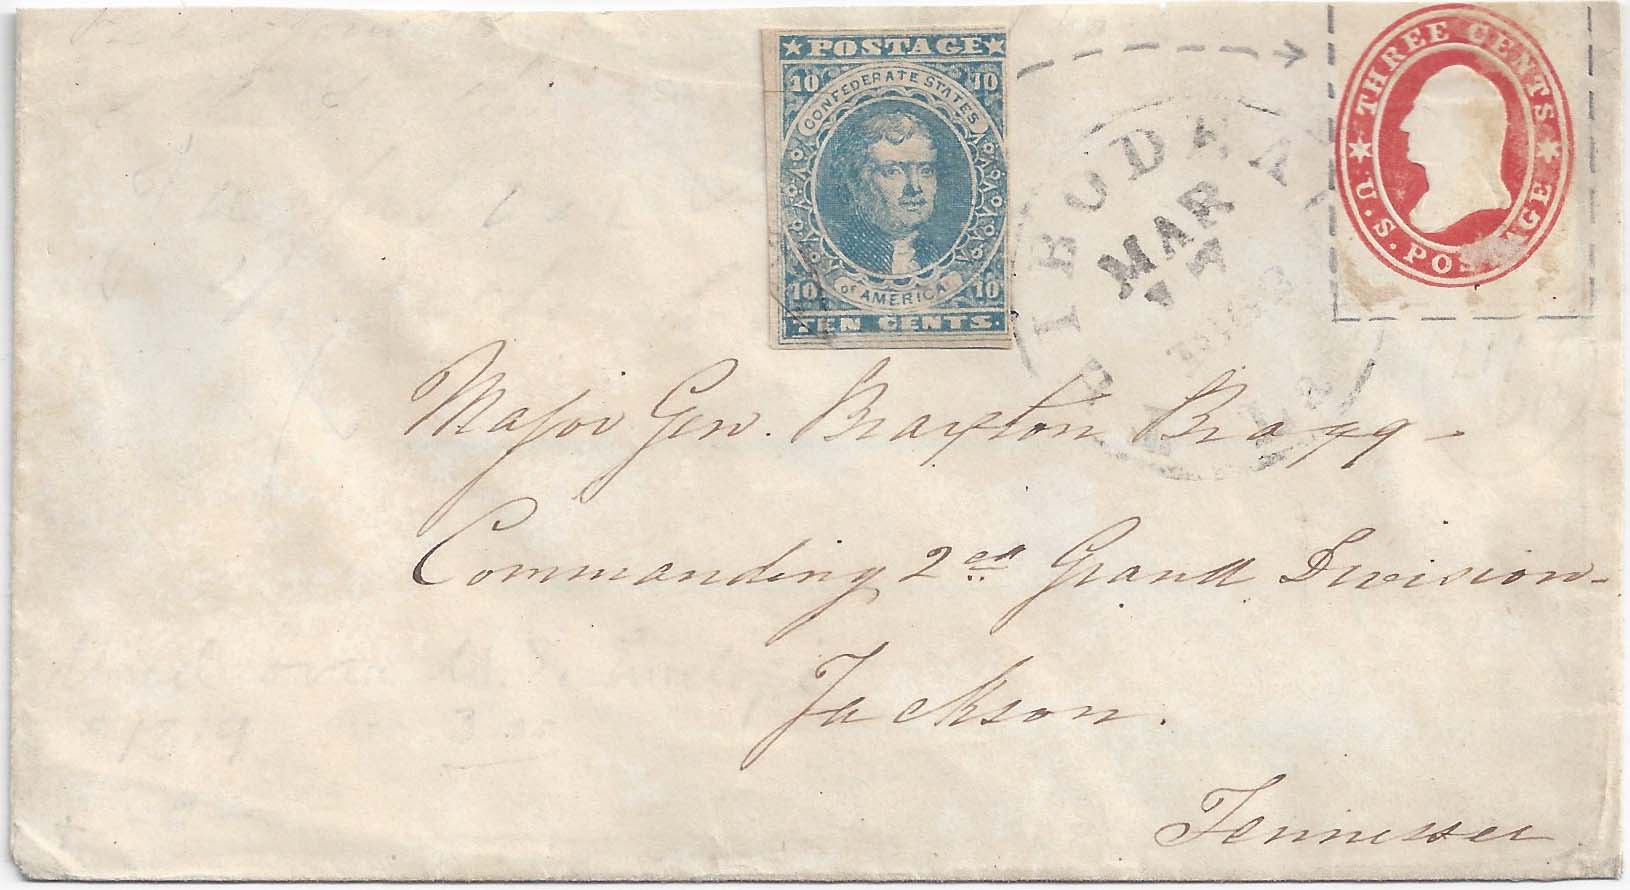 ★ POSTAGE ★
10 10
CONFEDERATE STATES
OF AMERICA
10 10
TEN CENTS.
THREE CENTS
★ ★
U.S. POSTAGE
MAR
Major Gen. Braxton Bragg-
Commanding 2ed Grand Division-
Jackson.
Tennessee